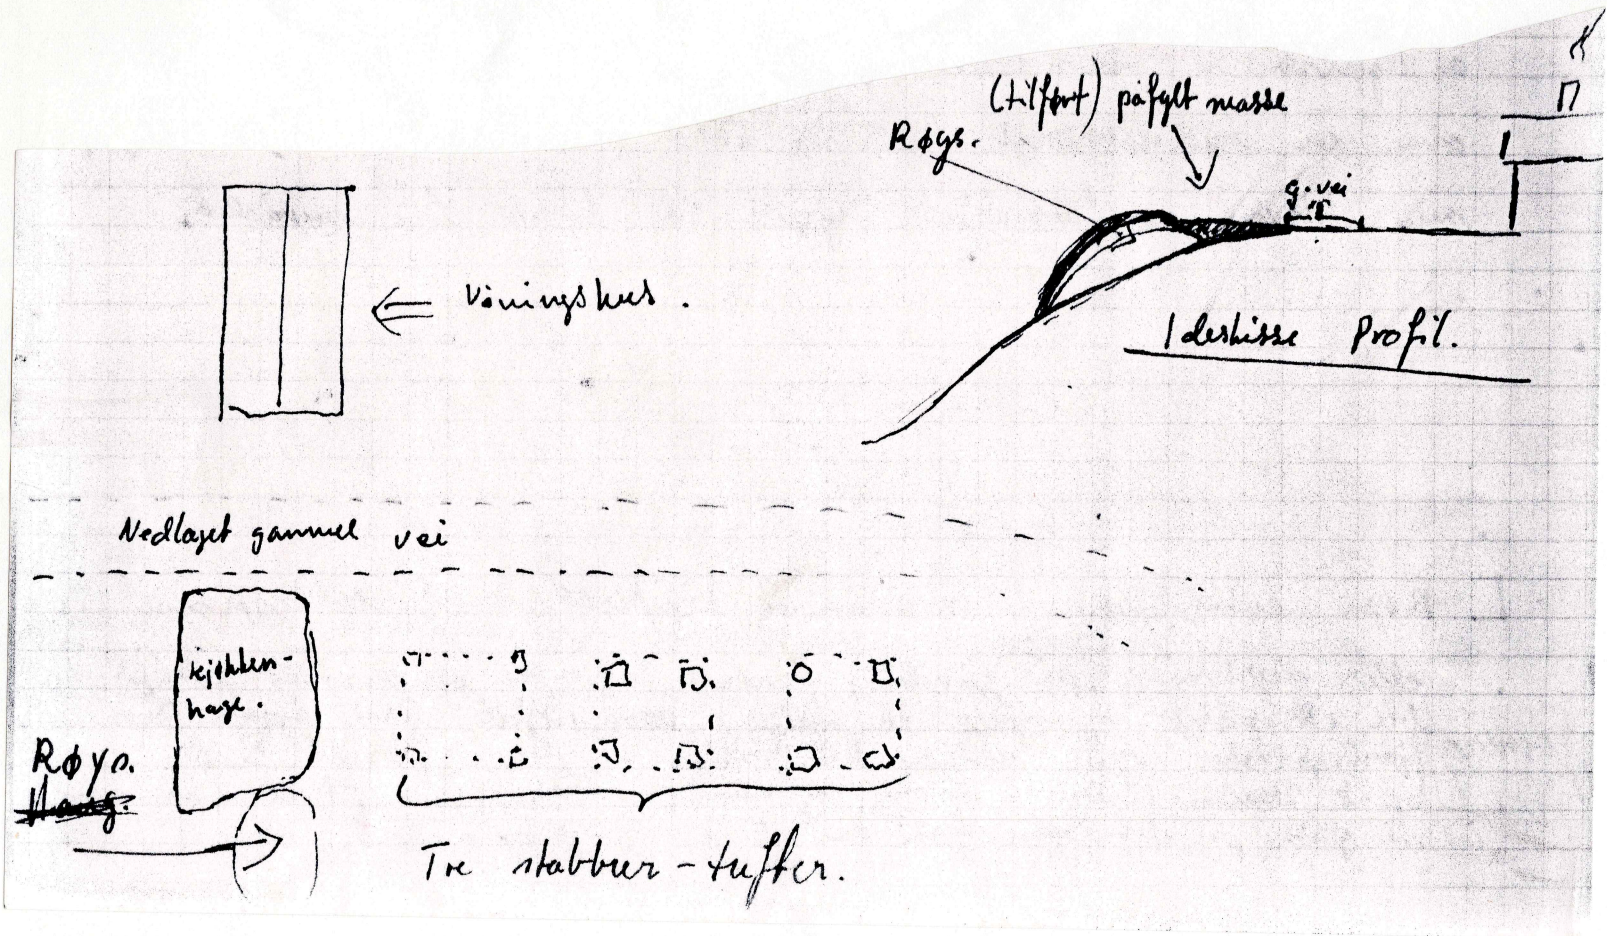 (tilført) påfylt masse
Røys.
g. vei
Våningshus.
Ideskisse Profil.
Nedlaget gammel vei
kjøkken-
hage.
Røys.
Haug.
Tre stabbur-tufter.